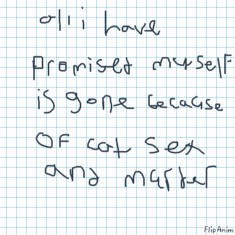 all i have
promised myself
is gone because
OF cat sex
and murder
FlipAnim